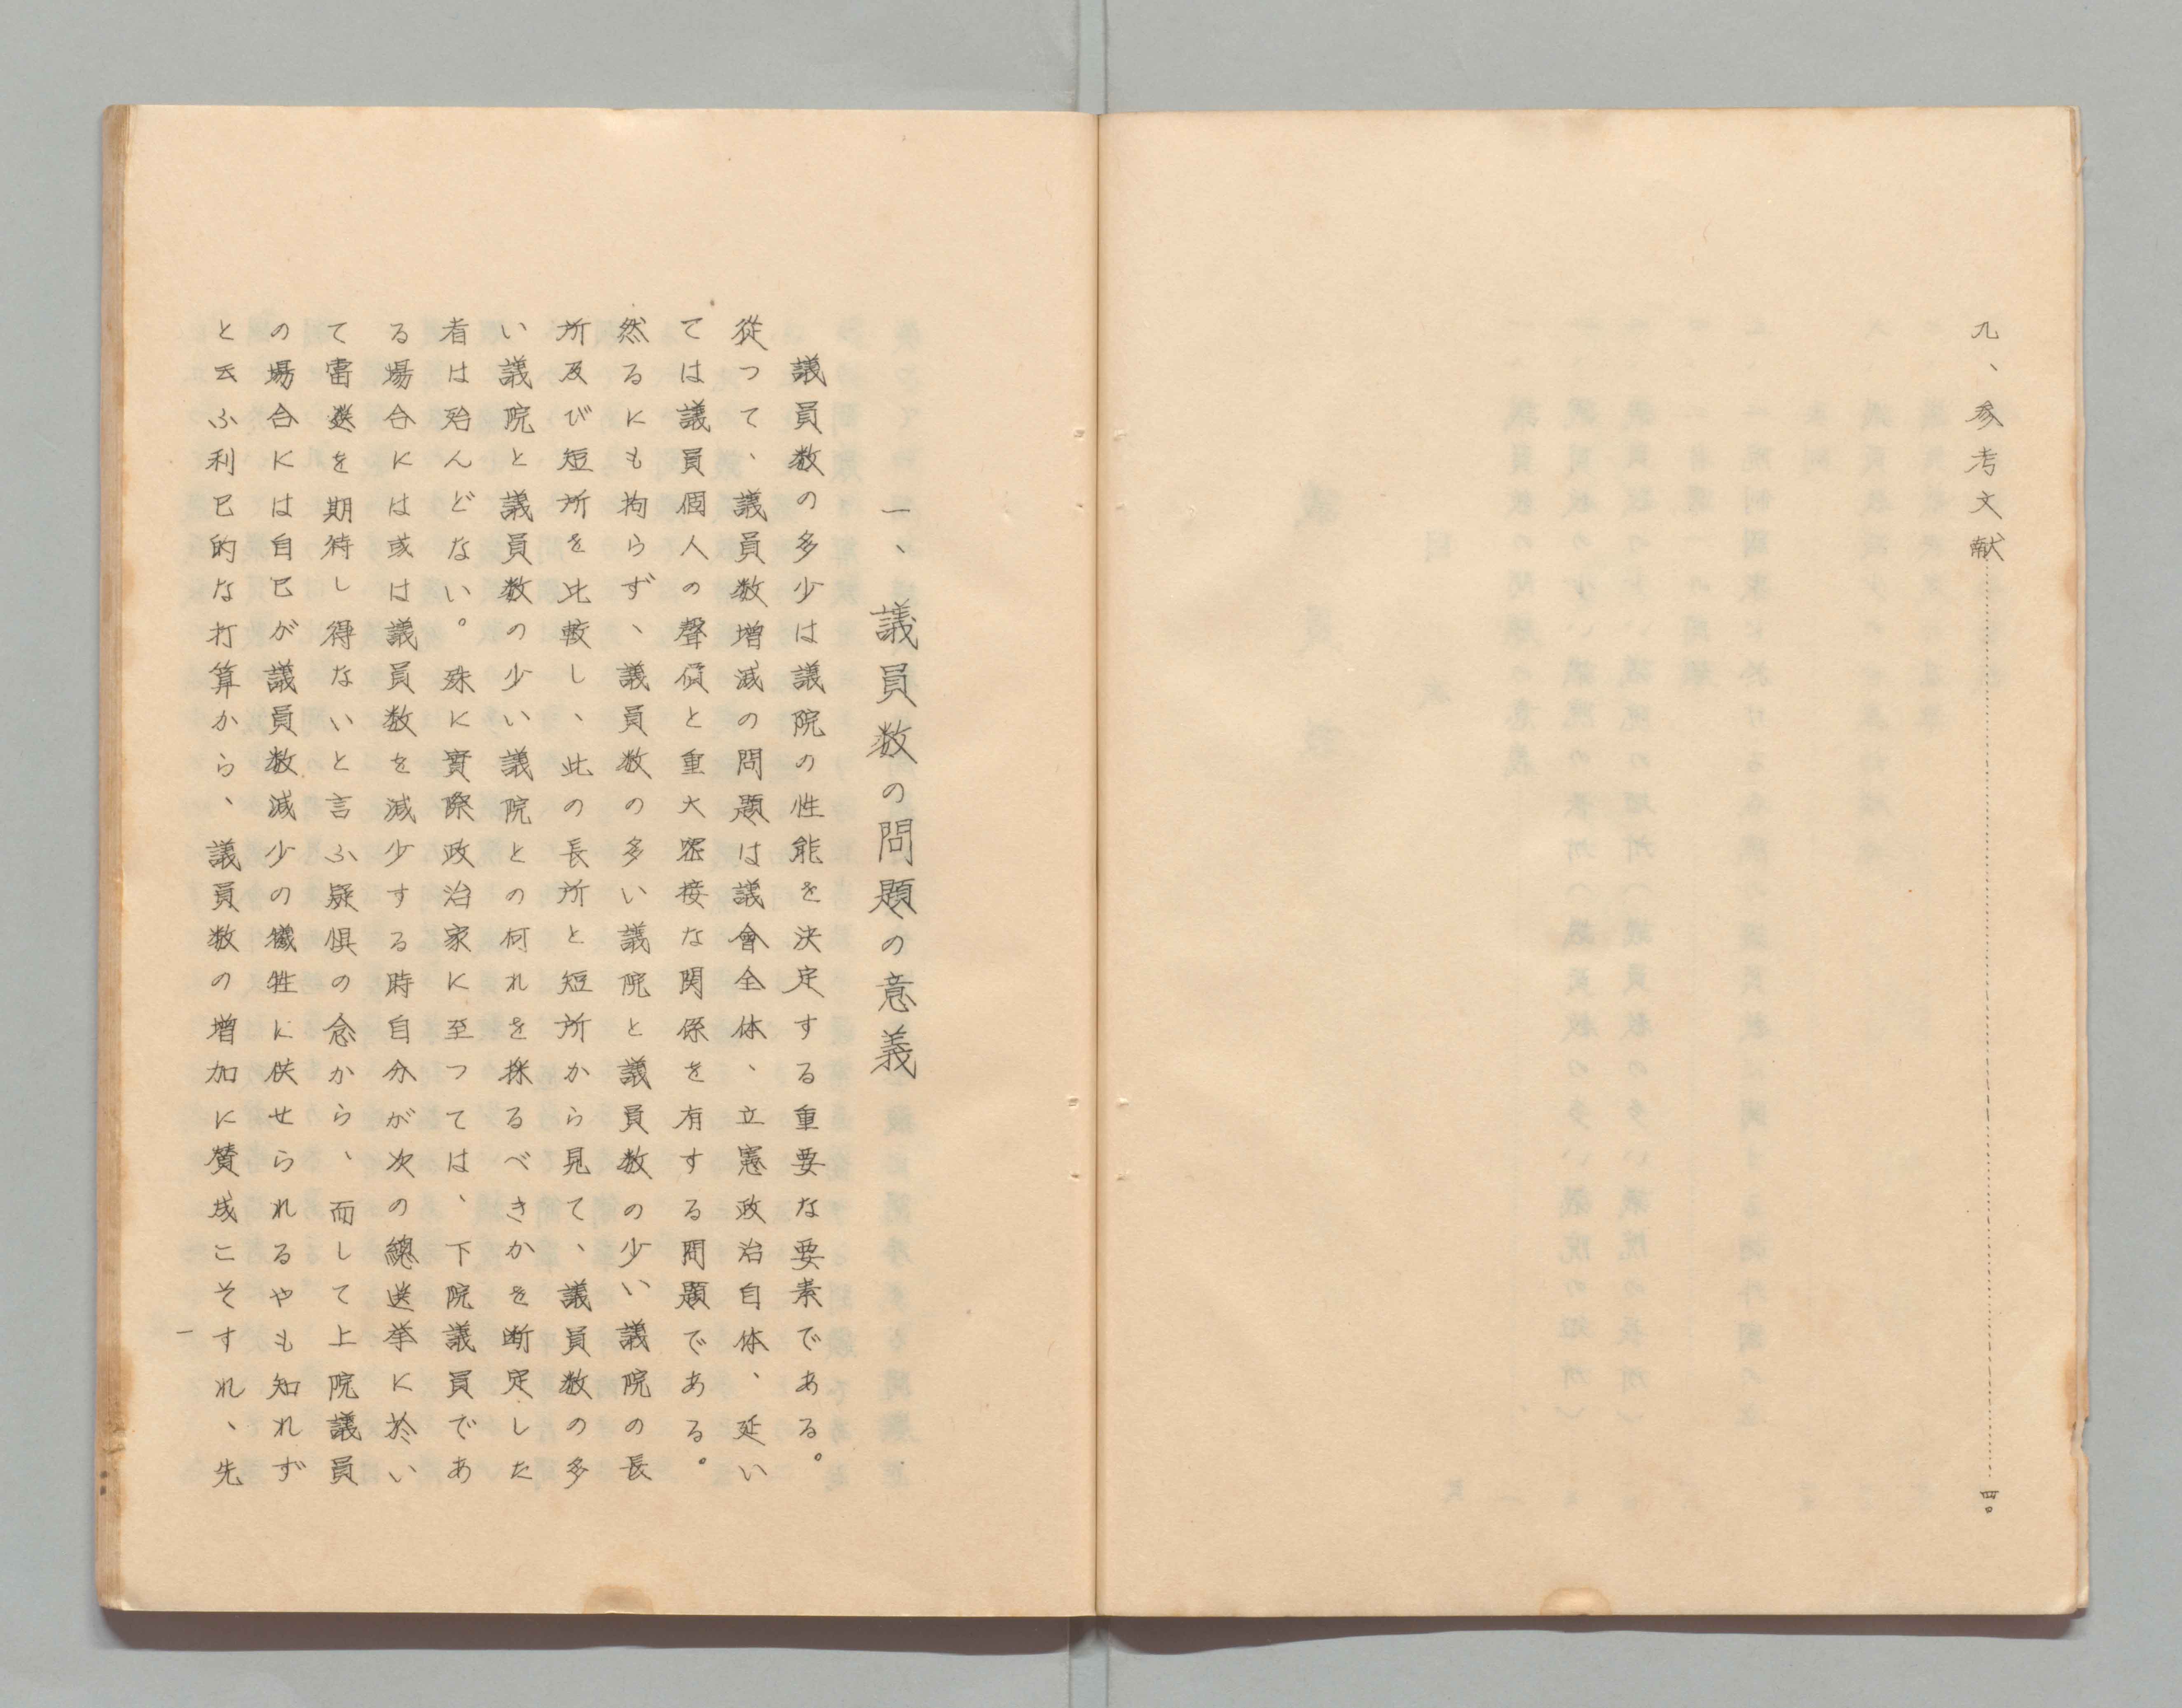 九、参考文献……………………………………四〇
一、議員数の問題の意義
議員数の多少は議院の性能を決定する重要な要素である。
従つて、議員数増減の問題は議會全体、立憲政治自体、延い
ては議員個人の聲價と重大密接な関係を有する問題である。
然るにも拘らず、議員数の多い議院と議員数の少い議院の長
所及び短所を比較し、此の長所と短所から見て、議員数の多
い議院と議員数の少い議院との何れを採るべきかを断定した
者は殆んどない。殊に實際政治家に至つては、下院議員であ
る場合には或は議員数を減少する時自分が次の總選挙に於い
て當選を期待し得ないと言ふ疑惧の念から、而して上院議員
の場合には自己が議員数減少の犠牲に供せられるやも知れず
と云ふ利己的な打算から、議員数の増加に賛成こそすれ、先
一